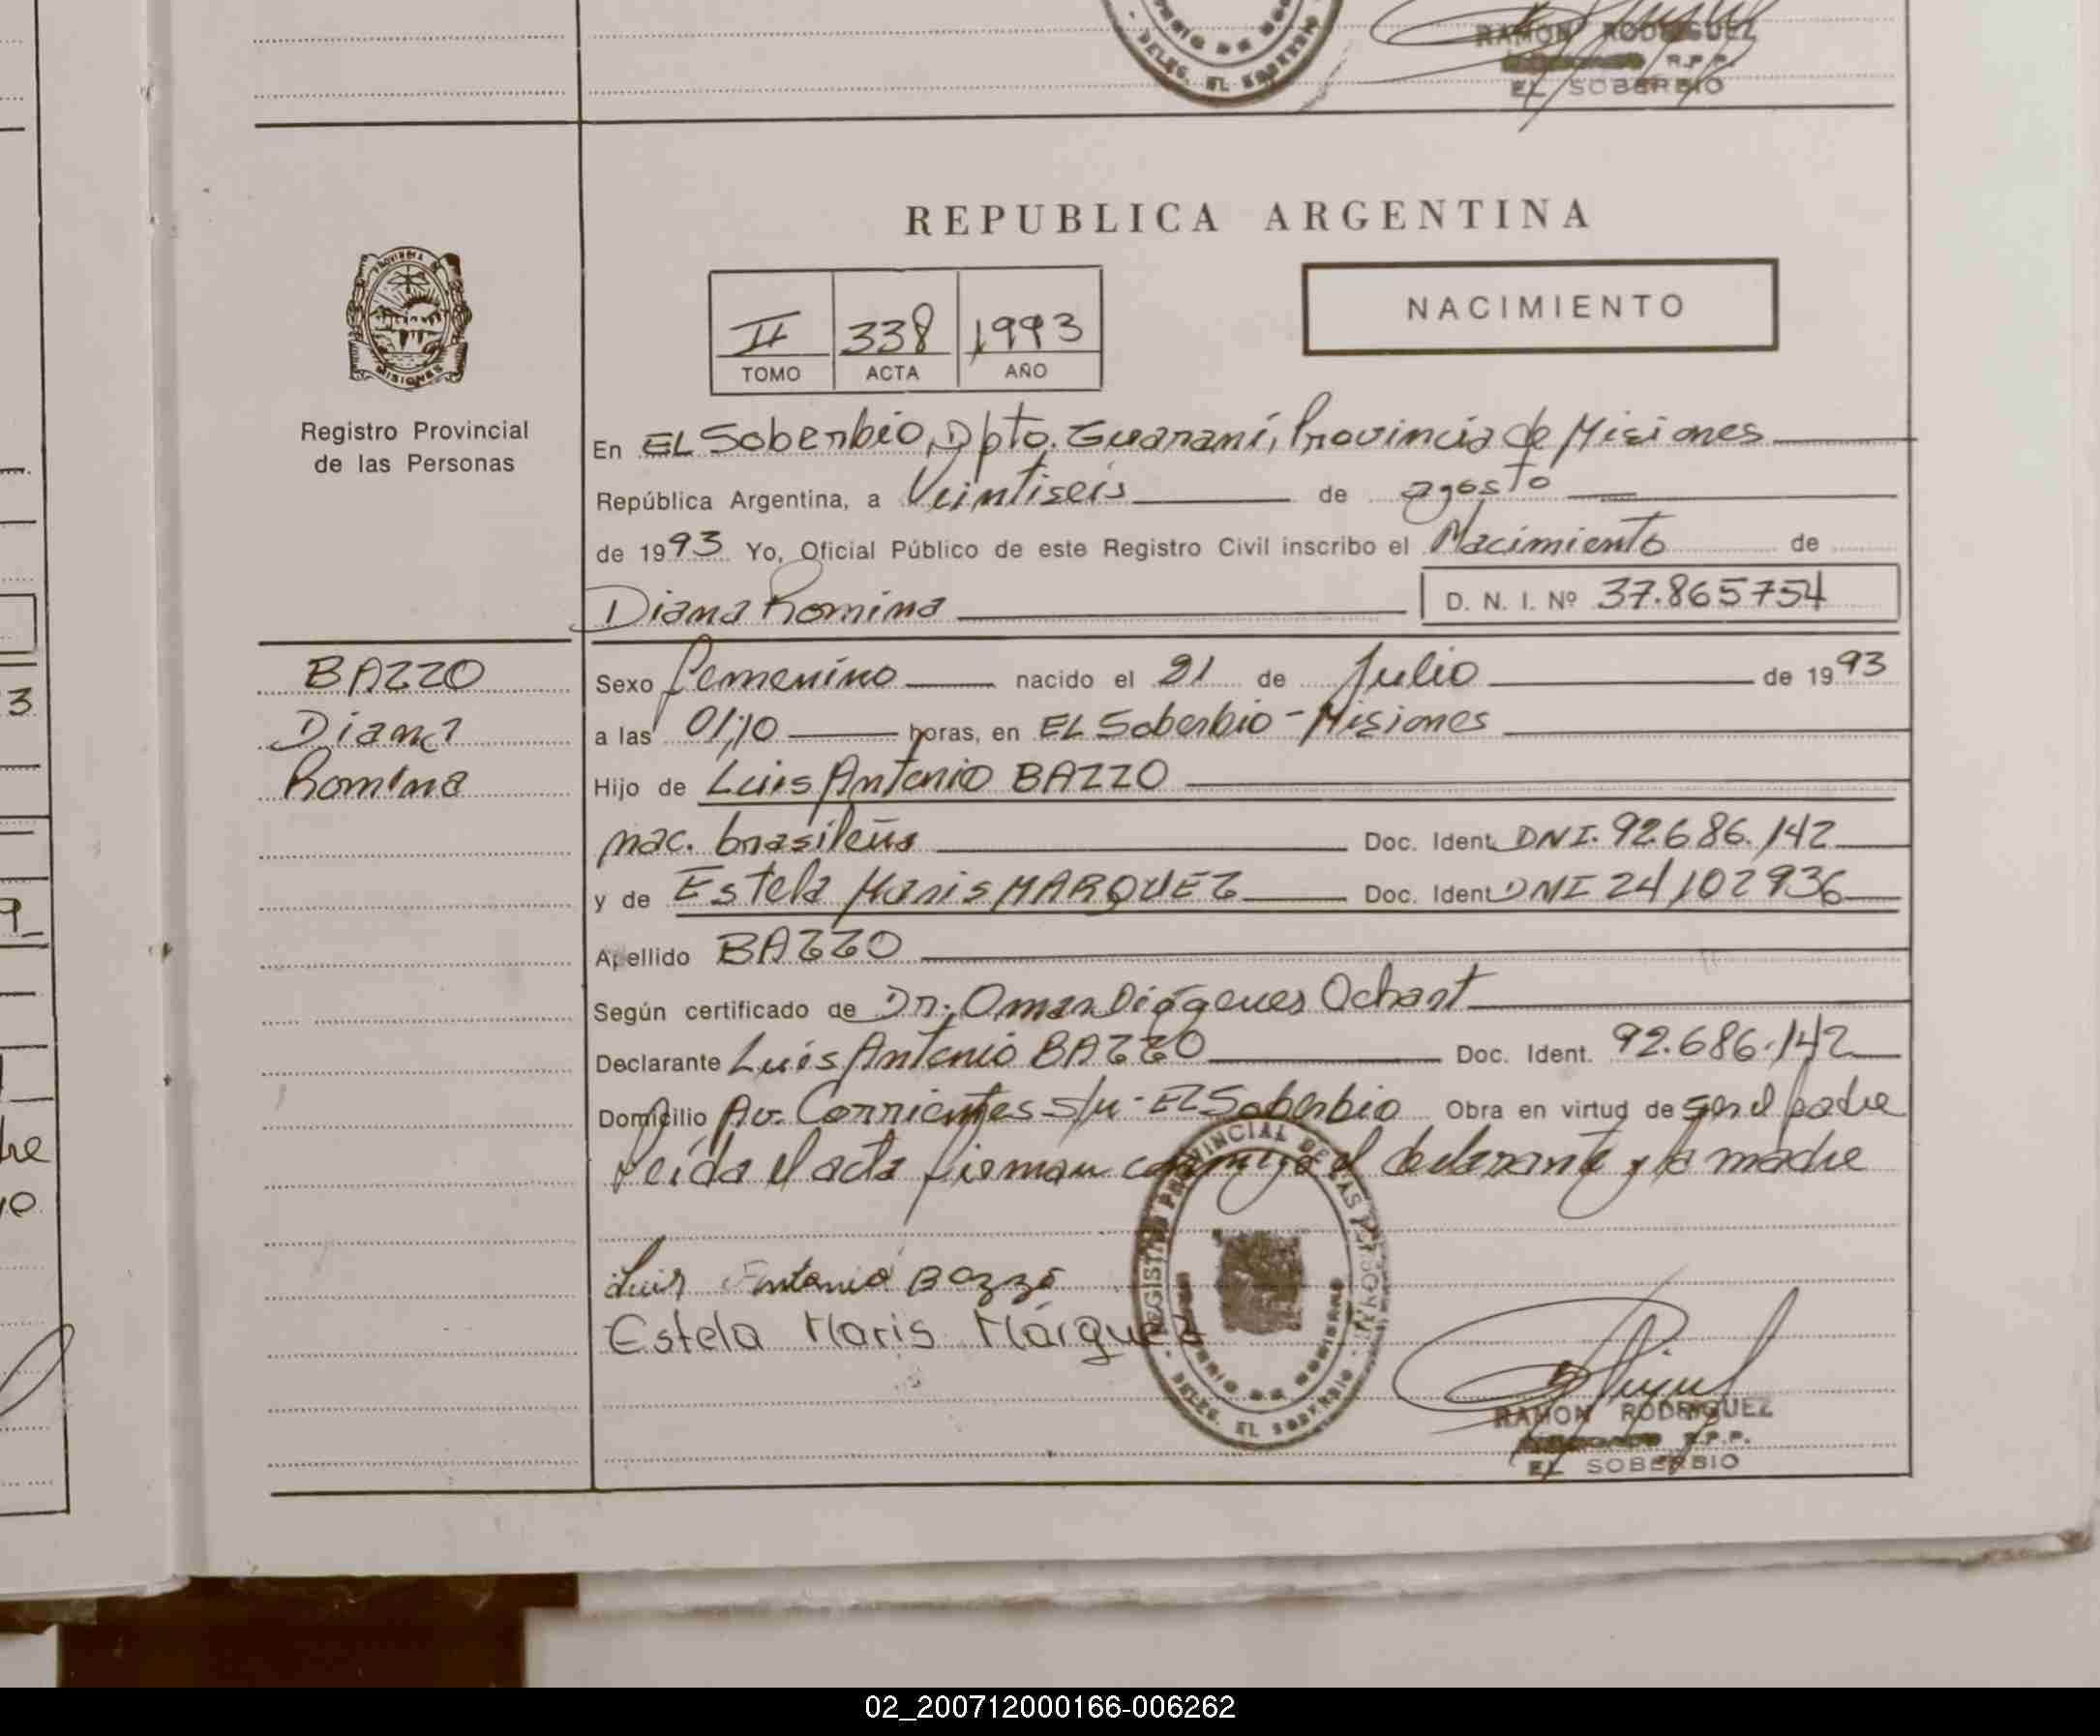 DELEG. EL SOBERBIO
RAMON RODRIGUEZ
R.P.P.
EL SOBERBIO
REPUBLICA ARGENTINA
PROVINCIA DE
MISIONES
Registro Provincial
de las Personas
II 338 1993
TOMO ACTA AÑO
NACIMIENTO
En EL Soberbio, Dpto. Guaraní, Provincia de Misiones
República Argentina, a Veintiseis de agosto
de 1993 Yo, Oficial Público de este Registro Civil inscribo el Nacimiento de
Diana Romina D. N. I. Nº 37.865754
BAZZO
Diana
Romina
Sexo femenino nacido el 21 de Julio de 1993
a las 01,10 horas, en EL Soberbio - Misiones
Hijo de Luis Antonio BAZZO
nac. brasileña Doc. Ident. DNI. 92.686.142
y de Estela Maris MARQUEZ Doc. Ident DNI 24,102936
Apellido BAZZO
Según certificado de Dr. Omar Diógenes Ochart
Declarante Luis Antonio BAZZO Doc. Ident. 92.686.142
Domicilio Av. Corrientes s/n - El Soberbio Obra en virtud de ser el padre
leída el acta firman conmigo el declarante y la madre
Luis Antonio Bazzo
Estela Maris Márquez
REGISTRO PROVINCIAL DE LAS PERSONAS
DELEG. EL SOBERBIO
RAMON RODRIGUEZ
R.P.P.
EL SOBERBIO
02_200712000166-006262